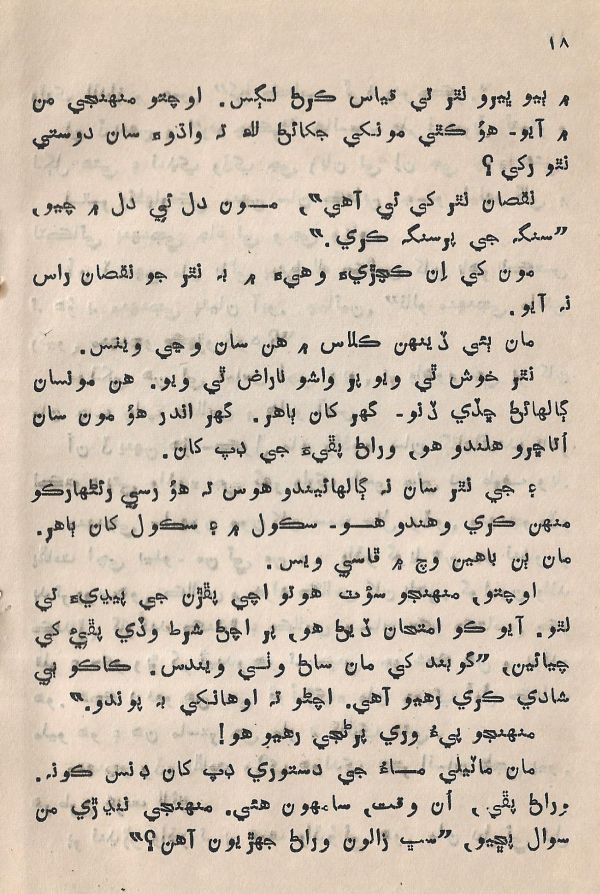 ۱۸
۾ ٻيو ڀيرو نٿر تي قياس ڪرڻ لڳس. اوچتو منهنجي من
۾ آيو- هوُ ڪٿي مونکي جڪائڻ لاءِ تہ واڌوءَ سان دوستي
نٿو رکي؟
نقصان نٿر کي ئي آهي”, مون دل ئي دل ۾ چيو,
”سنگہ جي پرسنگہ ڪري.”
مون کي اِن ڪڇڙيءَ وهيءَ ۾ بہ نٿر جو نقصان راس
نہ آيو.
مان ٻئي ڏينهن ڪلاس ۾ هن سان وڃي ويٺس.
نٿر خوش ٿي ويو پر واشو ناراض ٿي ويو. هن مونسان
ڳالهائڻ ڇڏي ڏنو- گهر کان ٻاهر. گهر اندر هوُ مون سان
اڻاڇرو هلندو هو, وراڻ پڦيءَ جي ڊپ کان.
۽ جي نٿر سان نہ ڳالهائيندو هوس تہ هوُ رسي رئڻهارڪو
منهن ڪري وهندو هو- سڪول ۾ ۽ سڪول کان ٻاهر.
مان ٻن ٻاهين وچ ۾ ڦاسي ويس.
اوچتو, منهنجو سؤٽ هوتو اچي پڦڙن جي پيڍيءَ تي
لٿو. آيو ڪو امتحان ڏيڻ هو, پر اچڻ شرط وڏي پڦيءَ کي
چيائين, ”گوبند کي مان ساڻ وٺي ويندس. ڪاڪو ٻي
شادي ڪري رهيو آهي. اچڻو تہ اوهانکي بہ پوندو.”
منهنجو پيءُ وري پرڻجي رهيو هو!
مان ماٽيلي ماءُ جي دستوري ڊپ کان ڊنس ڪونہ.
وراڻ پڦي, اُن وقت, سامهون هئي. منهنجي ننڍڙي من
سوال پڇيو, ”سڀ زالون وراڻ جهڙيون آهن؟”